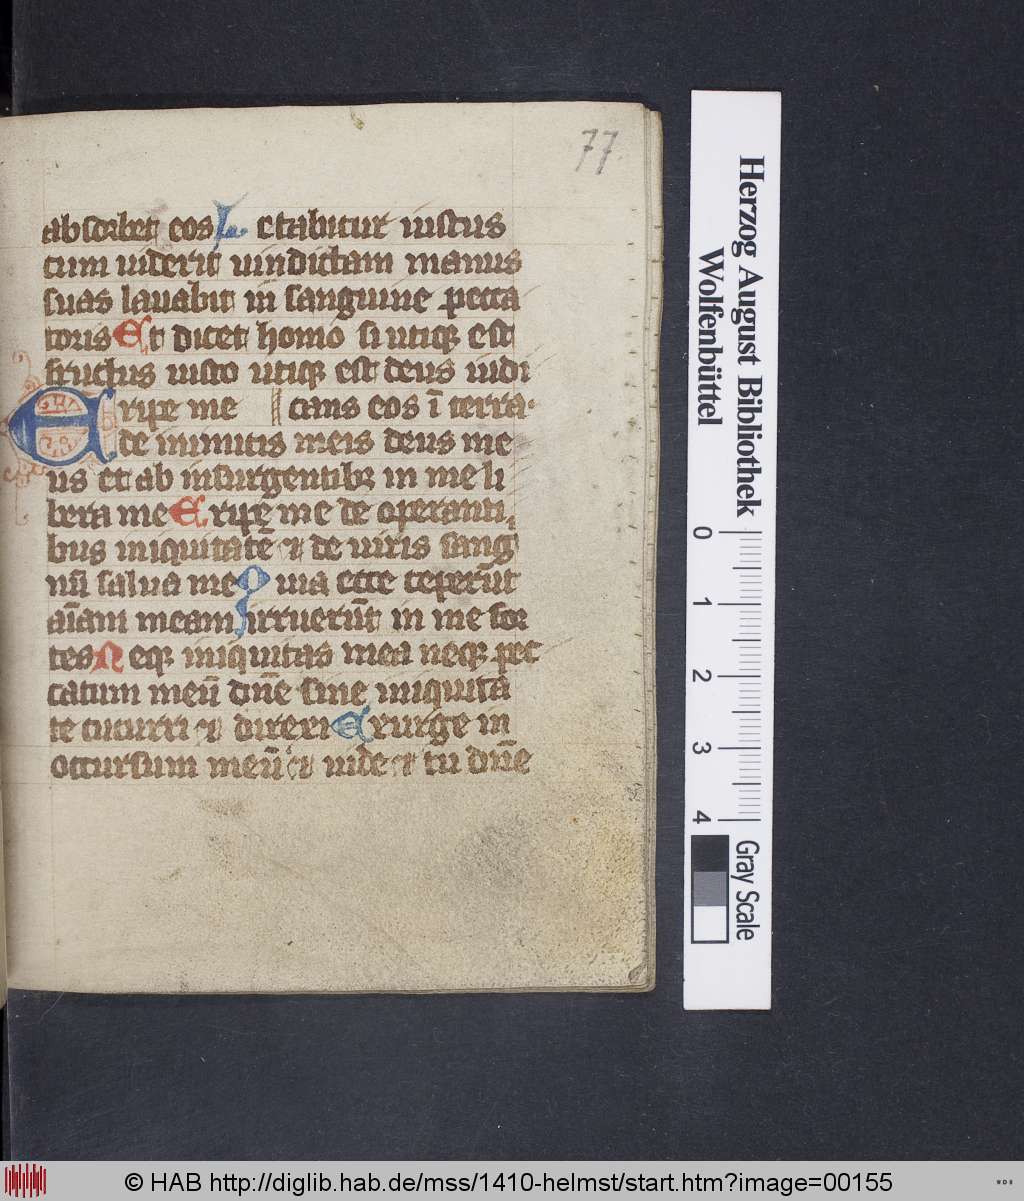 77
absorbet eos Letabitur iustus
cum uiderit uindictam manus
suas lauabit in sanguine pecca
toris Et dicet homo si utiqꝫ est
fructus iusto utiqꝫ est deus iudi
Eripe me cans eos ī terra·
de inimicis meis deus me
us et ab insurgentibꝫ in me li
bera me Eripe me de operanti
bus iniquitatē ⁊ de uiris sang
nū salua me Quia ecce ceperūt
aīam meam irruerūt in me for
tes Neqꝫ iniquitas mea neqꝫ pec
catum meū dn̄e sine iniquita
te cucurri ⁊ direxi Exurge in
occursum meū ⁊ uide ⁊ tu dn̄e
Herzog August Bibliothek
Wolfenbüttel
0 1 2 3 4
Gray Scale
© HAB http://diglib.hab.de/mss/1410-helmst/start.htm?image=00155